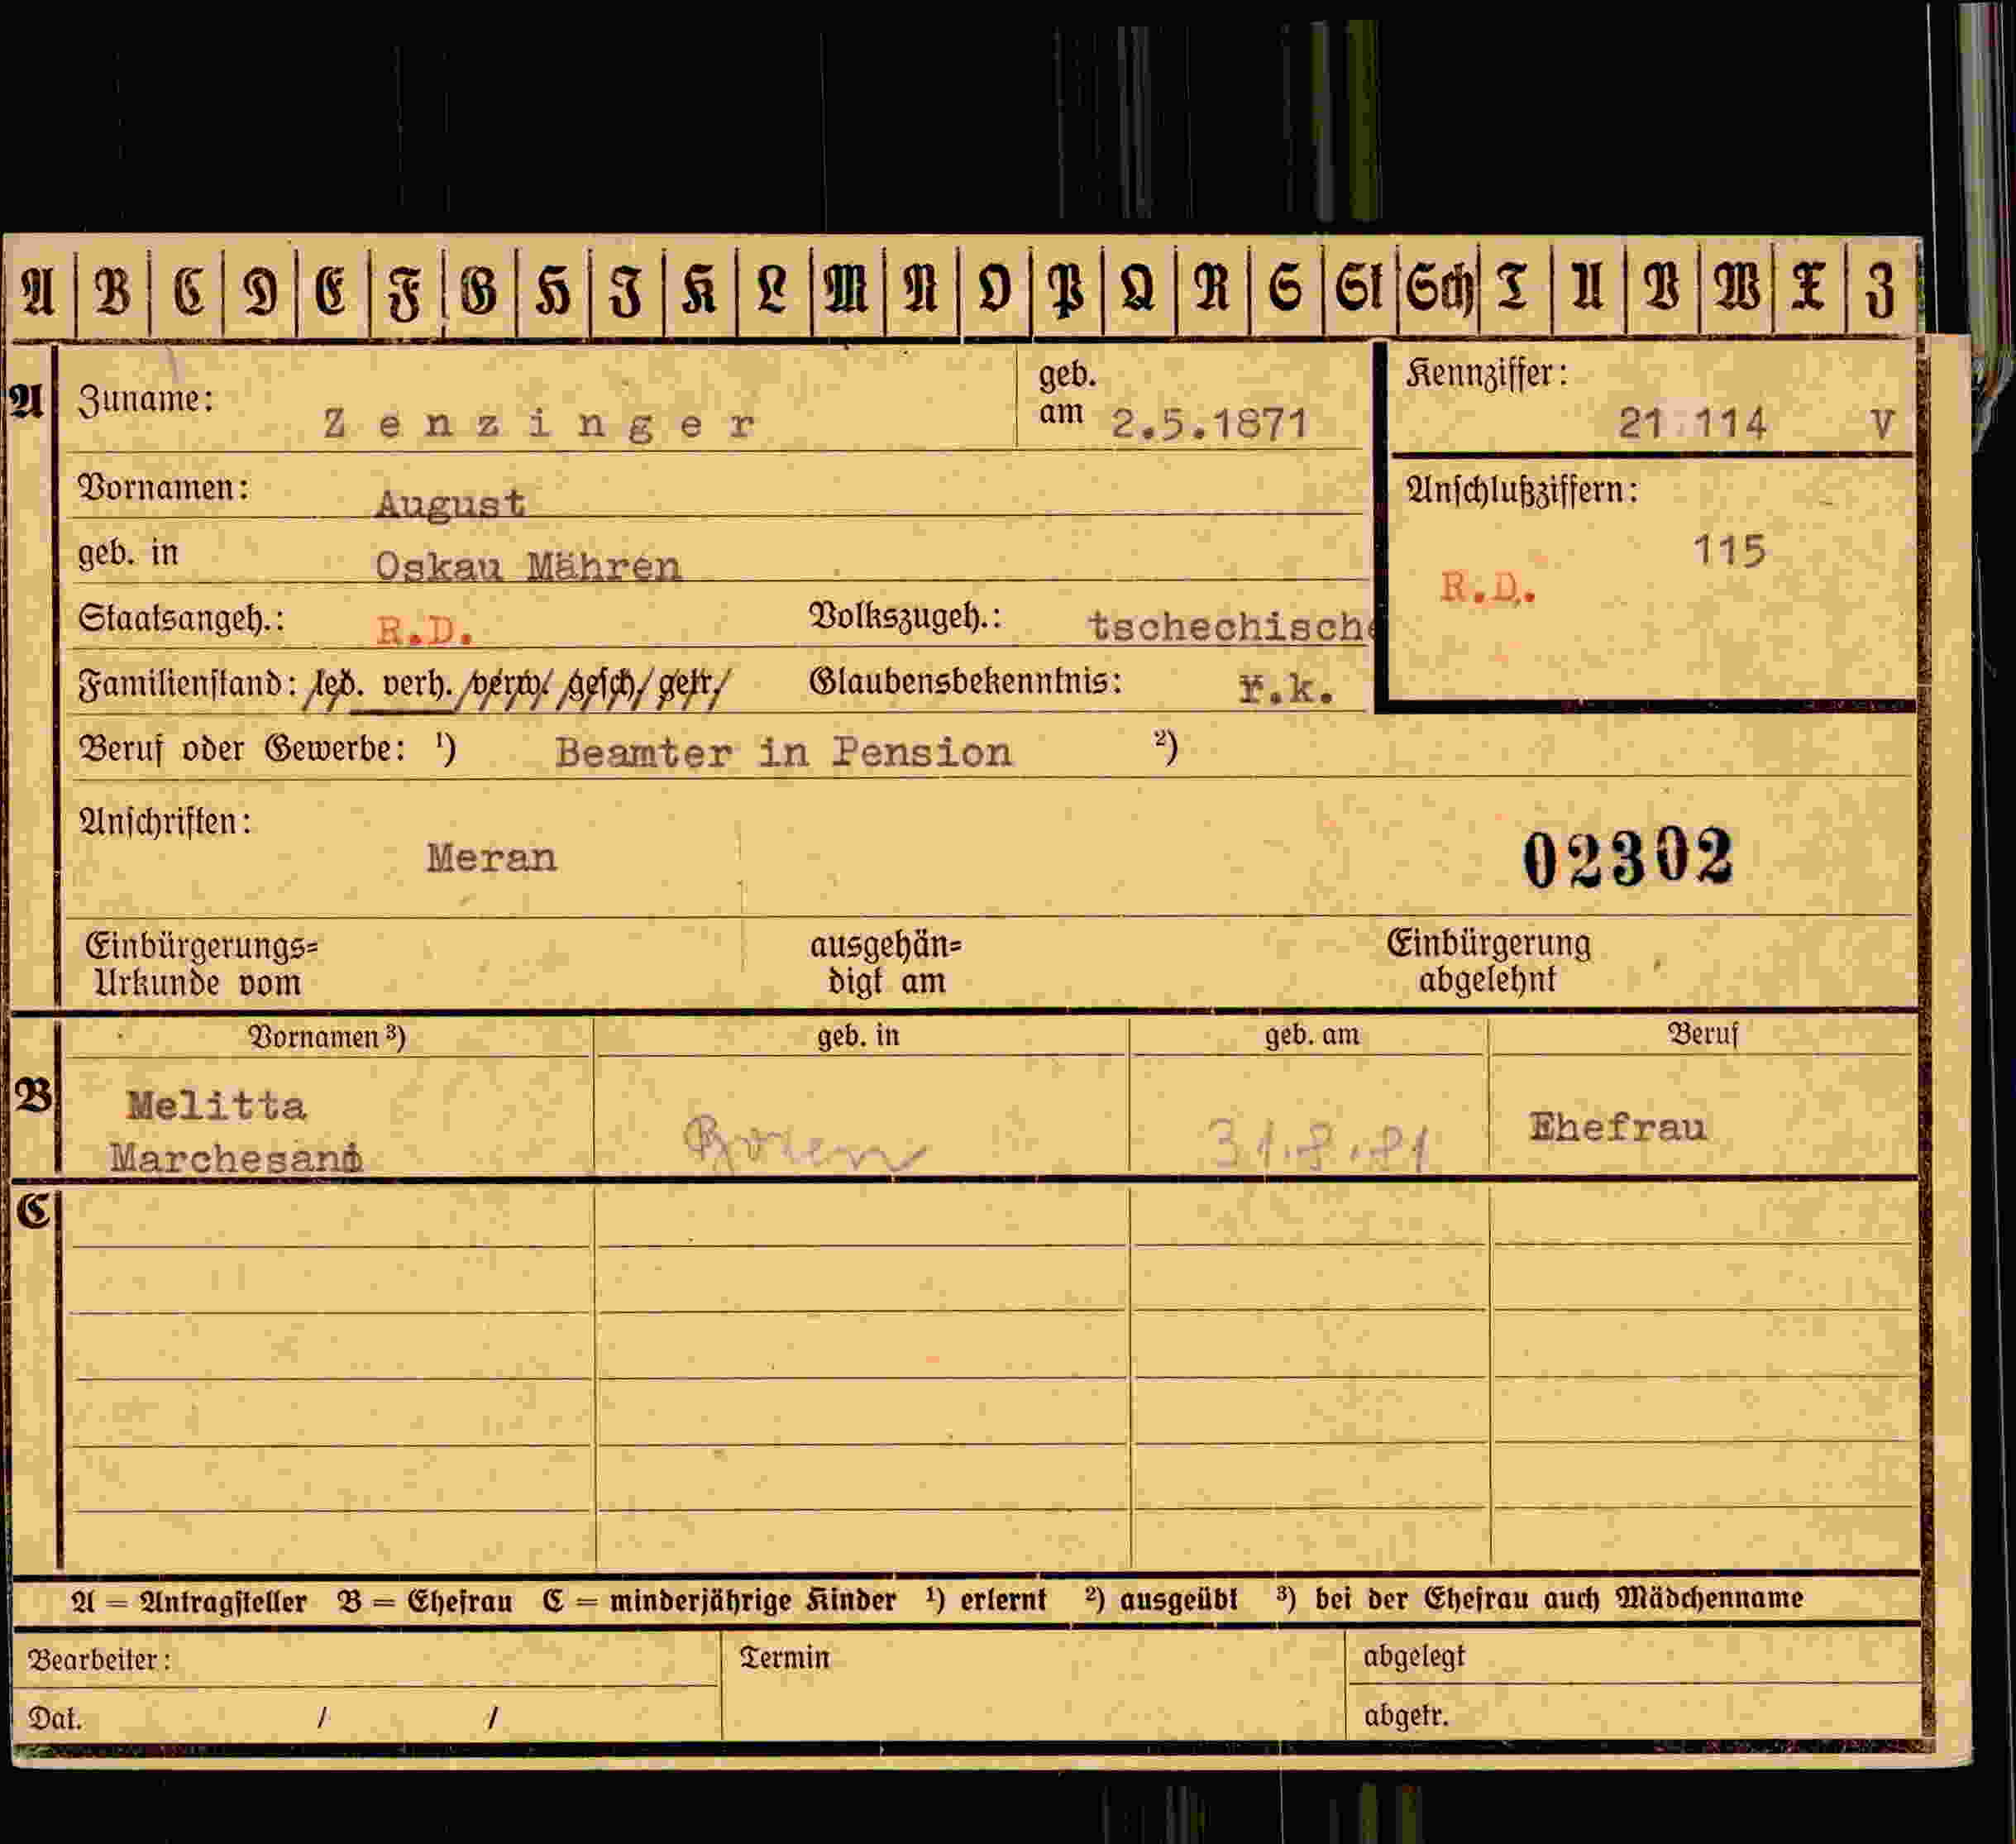 A B C D E F G H I K L M N O P Q R S St Sch T U V W X Z
A Zuname: Zenzinger geb. am 2.5.1871 Kennziffer: 21 114 V
Vornamen: August Anschlußziffern:
115
geb. in Oskau Mähren R.D.
Staatsangeh.: R.D. Volkszugeh.: tschechische
Familienstand: led. verh. verw. gesch. getr. Glaubensbekenntnis: r.k.
Beruf oder Gewerbe: ¹) Beamter in Pension ²)
Anschriften:
Meran 02302
Einbürgerungs= ausgehän= Einbürgerung
Urkunde vom digt am abgelehnt
Vornamen ³) geb. in geb. am Beruf
B Melitta Bozen 31.8.81 Ehefrau
Marchesani
C
A = Antragsteller B = Ehefrau C = minderjährige Kinder ¹) erlernt ²) ausgeübt ³) bei der Ehefrau auch Mädchenname
Bearbeiter: Termin abgelegt
Dat. / / abgetr.